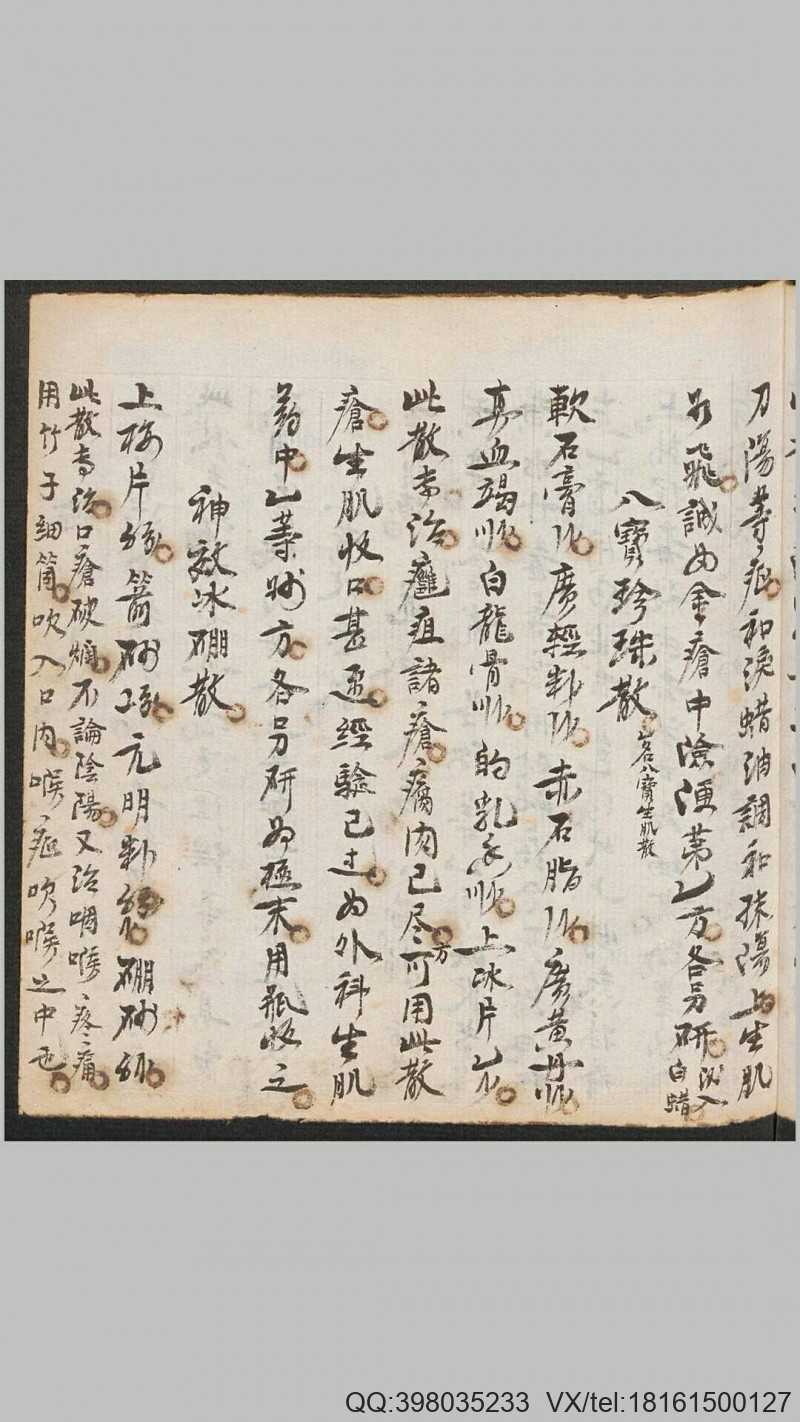 刀傷等症和浼蜡油調和抹傷上生肌
飛誠如金瘡中險便第乙方各另研
入白蜡
八寶珍珠散
名八寶生肌散
軟石膏 廣輕粉 赤石脂 廣黃丹
真血竭 白龍骨 的乳香 上冰片
此散耑治癰疽諸瘡腐肉已尽方可用此散
瘡生肌收口甚速經驗已过为外科生肌
葯中乙萊妙方各另研为極末用瓶收之
神效冰硼散
上梅片 箭砂 元明粉 硼砂
此散耑治口瘡破爛不論陰陽又治咽喉疼痛
用竹子細筒吹入口内喉症吹喉之中也
QQ:398035233 VX/tel:18161500127